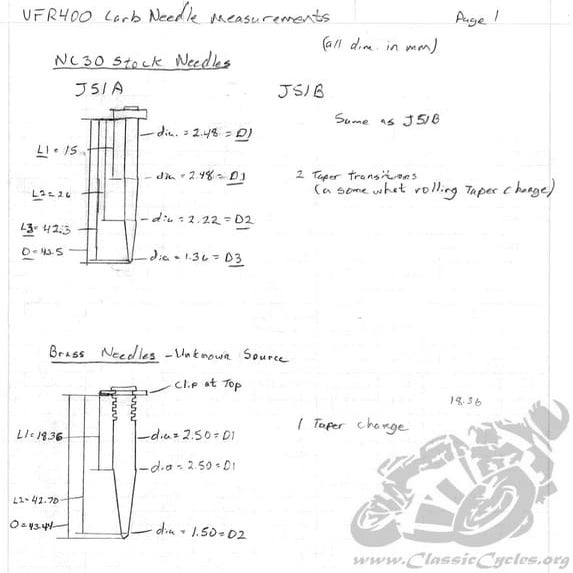 VFR400 Carb Needle Measurements
Page 1
(all dim. in mm)
NC30 Stock Needles
J51A
J51B
Same as J51B
dia. = 2.48 = D1
L1 = 15
dia = 2.48 = D1
2 Taper transitions
(a some what rolling Taper change)
L2 = 26
dia = 2.22 = D2
L3 = 42.3
O = 43.5
dia = 1.36 = D3
Brass Needles - Unknown Source
Clip at Top
18.36
L1 = 18.36
dia = 2.50 = D1
1 Taper change
dia = 2.50 = D1
L2 = 42.70
O = 43.44
dia = 1.50 = D2
www.ClassicCycles.org